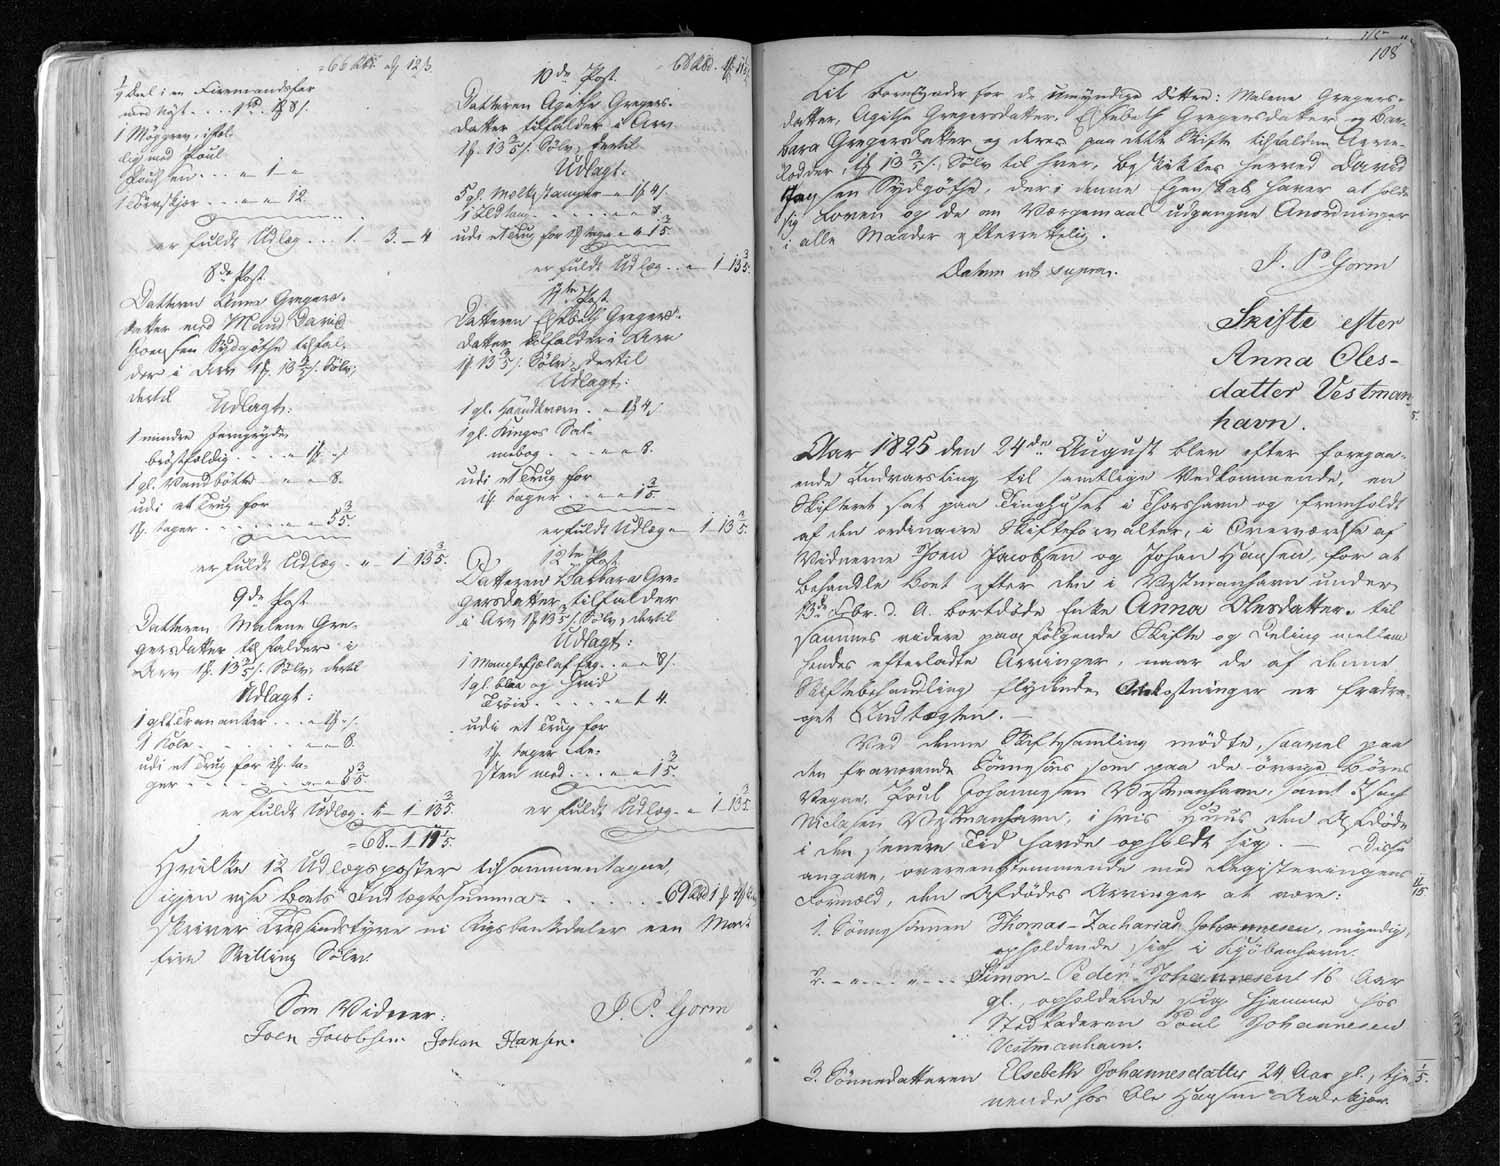 =66 Rbd. 4 ₰ 12 ß.
1/4 Deel i en Firemandsfar
med Nyt . . . 1 8 ß.
1 Møggrev, i fæl-
lig med Poul
Poulsen . . . „ 1 „
1 Tørvskjær . . „ „ 12.
er fuldt Udlæg . . . 1. 3. — 4
8de Post.
Datteren Anne Gregers-
datter med Mand David
Joensen Sydgøthe tilfal-
der i Arv 1 ₰. 13 3/5 ß. Sølv,
dertil
Udlagt:
1 mindre Jerngryde
brøstfældig . . . „ 1 ₰ „ ß
1 gl. Vandbøtte „ „ 8.
udi et Trug for
₰. tager . . . . „ „ 5 3/5.
er fuldt Udlæg . „ 1 13 3/5.
9de Post.
Datteren Malene Gre-
gersdatter tilfalder i
Arv 1 ₰. 13 3/5 ß. Sølv, dertil
Udlagt:
1 gl. . . . „ 1 ₰ „ ß.
1 Kole . . . . . „ „ 8.
udi et Trug for ₰. ta-
ger . . . . . „ „ 5 3/5.
er fuldt Udlæg. „ 1 13 3/5.
=68. 1 11 1/5.
=68 Rbd. 1 ₰ 11 1/5
10de Post.
Datteren Agithe Gregers-
datter tilfalder i Arv
1 ₰. 13 3/5 ß. Sølv, dertil
Udlagt:
5 gl. Melkestamper „ 1 ₰ 4 ß.
1 Ildtang . . . . . „ „ 8.
udi et Trug for ₰ tager „ „ 1 3/5.
er fuldt Udlæg . . „ 1 13 3/5.
11te Post.
Datteren Elsebeth Gregers-
datter tilfalder i Arv
1 ₰. 13 3/5 ß. Sølv, dertil
Udlagt:
1 gl. Haandkværn . „ 1 ₰ 4 ß.
1 gl. Kingos Sal-
mebog . . . . „ „ 8.
udi et Trug for
₰. tager . . . „ „ 1 3/5.
er fuldt Udlæg „ 1 13 3/5.
12te Post.
Datteren Barbara Gre-
gersdatter tilfalder
i Arv 1 ₰ 13 3/5 ß. Sølv, dertil
Udlagt:
1 . . . „ „ 8 ß.
1 gl. blaa og hvid
Trøie . . . . . „ 1 4.
udi et Trug for
₰. tager Re-
sten med . . . „ „ 1 3/5.
er fuldt Udlæg „ 1 13 3/5.
Hvilke 12 Udlægsposter tilsammentagne,
igjen vise Boets Indtægtssumma = . . . . . . 69 Rbd 1 ₰ 4 ß
skriver Tresindstyve ni Rigsbankdaler een Mark
fire Skilling Sølv.
Som Vidner: J. P. Gorm
Joen Jacobsen. Johan Hansen.
108
Til Formynder for de umyndige Døttre: Malene Gregers-
datter, Agithe Gregersdatter, Elsebeth Gregersdatter og Bar-
bara Gregersdatter og deres paa dette Skifte tilfaldne Arve-
lodder, 1 ₰ 13 3/5 ß. Sølv til hver, beskikkes herved David
Joensen Sydgøthe, der i denne Egenskab haver at holde
sig Loven og de om Værgemaal udgangne Anordninger
i alle Maader efterrettelig.
Datum ut supra. J. P. Gorm
Skifte efter
Anna Oles-
datter Vestman-
havn.
Aar 1825 den 24de August blev efter foregaa-
ende Indvarsling til samtlige Vedkommende, en
Skifteret sat paa Tinghuset i Thorshavn og fremholdt
af den ordinaire Skifteforvalter, i Overværelse af
Vidnerne Joen Jacobsen og Johan Hansen, for at
behandle Boet efter den i Vestmanhavn under
13de Febr. d. A. bortdøde Enke Anna Olesdatter. til
sammes videre paafølgende Skifte og Deling mellem
hendes efterladte Arvinger, naar de af denne
Skiftebehandling flydende Omkostninger er fradra-
get Indtægten. —
Ved denne Skiftesamling mødte, saavel paa
den fraværende Sønnesøns som paa de øvrige Børns
Vegne, Poul Johannesen Vestmanhavn, samt Isach
Niclasen Vestmanhavn, i hvis Huus den Afdøde
i den senere Tid havde opholdt sig. — Disse
angave, overeensstemmende med Registeringens
Formeld, den Afdødes Arvinger at være:
1. Sønnesønnen Thomas-Zacharias Johannesen, myndig,
opholdende sig i Kjøbenhavn.
2. „ „ „ „ Simon-Peder Johannesen 16 Aar
gl., opholdende sig hjemme hos
Stedfaderen Poul Johannesen
Vestmanhavn.
3. Sønnedatteren Elsebeth Johannesdatter 24 Aar gl., tje-
nende hos Ole Hansen